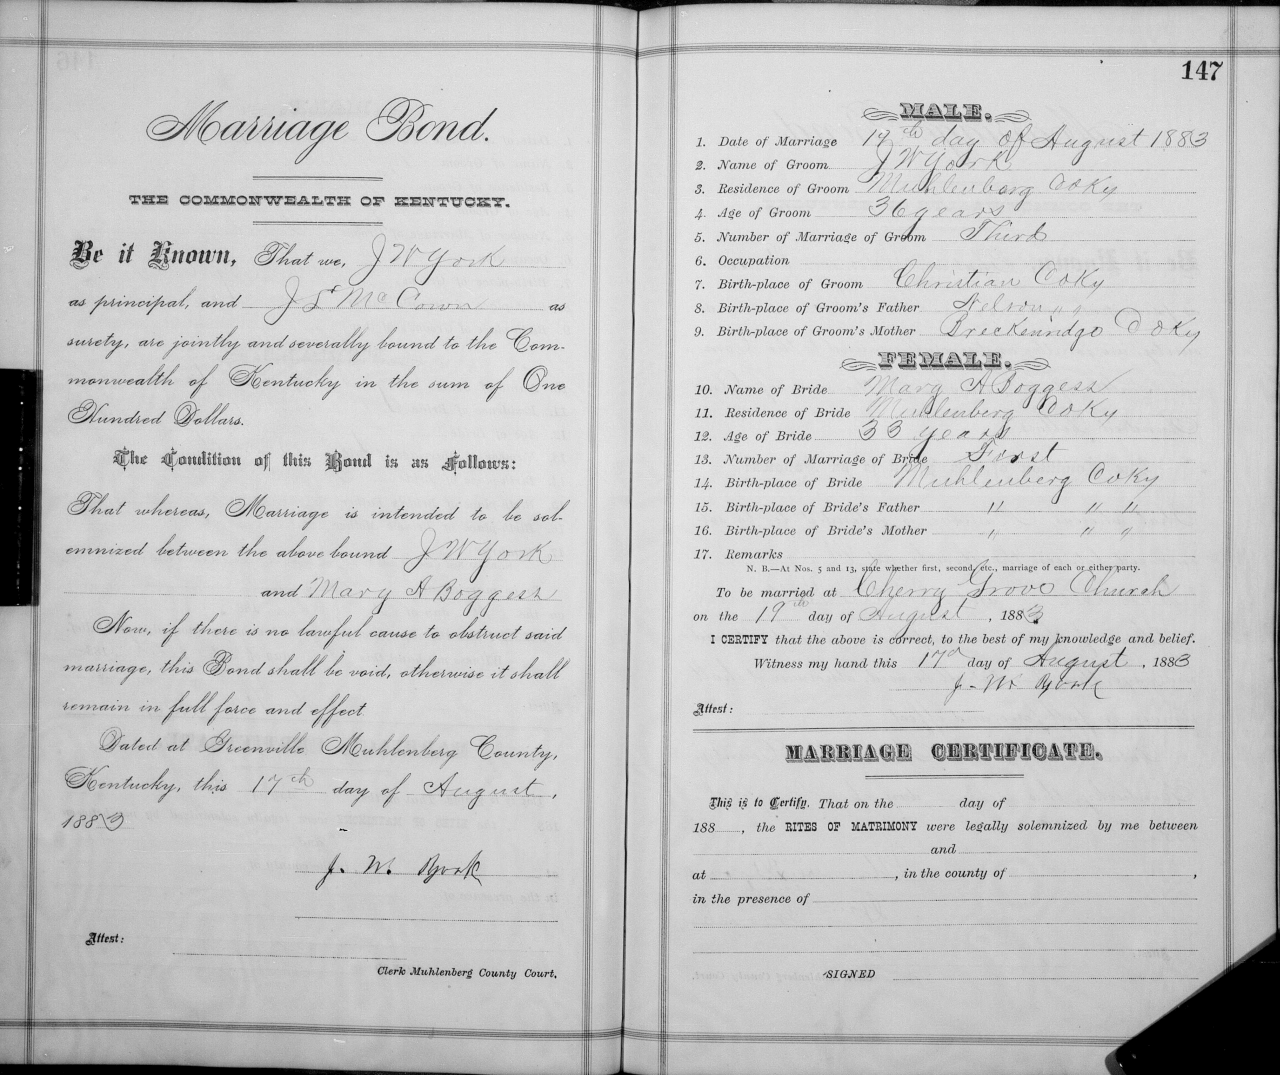 Marriage Bond.
THE COMMONWEALTH OF KENTUCKY.
Be it Known, That we, J W York
as principal, and J L McCown as
surety, are jointly and severally bound to the Com-
monwealth of Kentucky in the sum of One
Hundred Dollars.
The Condition of this Bond is as Follows:
That whereas, Marriage is intended to be sol-
emnized between the above bound J W York
and Mary A Boggess
Now, if there is no lawful cause to obstruct said
marriage, this Bond shall be void, otherwise it shall
remain in full force and effect.
Dated at Greenville Muhlenberg County,
Kentucky, this 17th day of August,
1883
J. W. York
Attest:
Clerk Muhlenberg County Court.
147
MALE.
1. Date of Marriage 19th day of August 1883
2. Name of Groom J W York
3. Residence of Groom Muhlenberg Co Ky
4. Age of Groom 36 years
5. Number of Marriage of Groom Third
6. Occupation
7. Birth-place of Groom Christian Co Ky
8. Birth-place of Groom's Father Nelson " "
9. Birth-place of Groom's Mother Breckenridge Co Ky
FEMALE.
10. Name of Bride Mary A Boggess
11. Residence of Bride Muhlenberg Co Ky
12. Age of Bride 33 years
13. Number of Marriage of Bride First
14. Birth-place of Bride Muhlenberg Co Ky
15. Birth-place of Bride's Father " " "
16. Birth-place of Bride's Mother " " "
17. Remarks
N. B.—At Nos. 5 and 13, state whether first, second, etc., marriage of each or either party.
To be married at Cherry Grove Church
on the 19th day of August, 1883.
I CERTIFY that the above is correct, to the best of my knowledge and belief.
Witness my hand this 17 day of August, 1883
J. W. York
Attest:
MARRIAGE CERTIFICATE.
This is to Certify, That on the day of
188 , the RITES OF MATRIMONY were legally solemnized by me between
and
at , in the county of ,
in the presence of
SIGNED